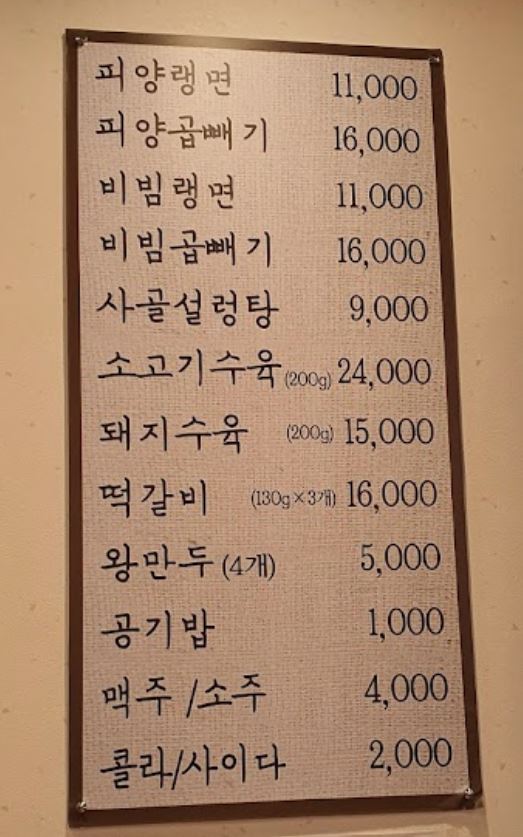 피양랭면 11,000
피양곱빼기 16,000
비빔랭면 11,000
비빔곱빼기 16,000
사골설렁탕 9,000
소고기수육 (200g) 24,000
돼지수육 (200g) 15,000
떡갈비 (130g×3개) 16,000
왕만두 (4개) 5,000
공기밥 1,000
맥주 /소주 4,000
콜라/사이다 2,000